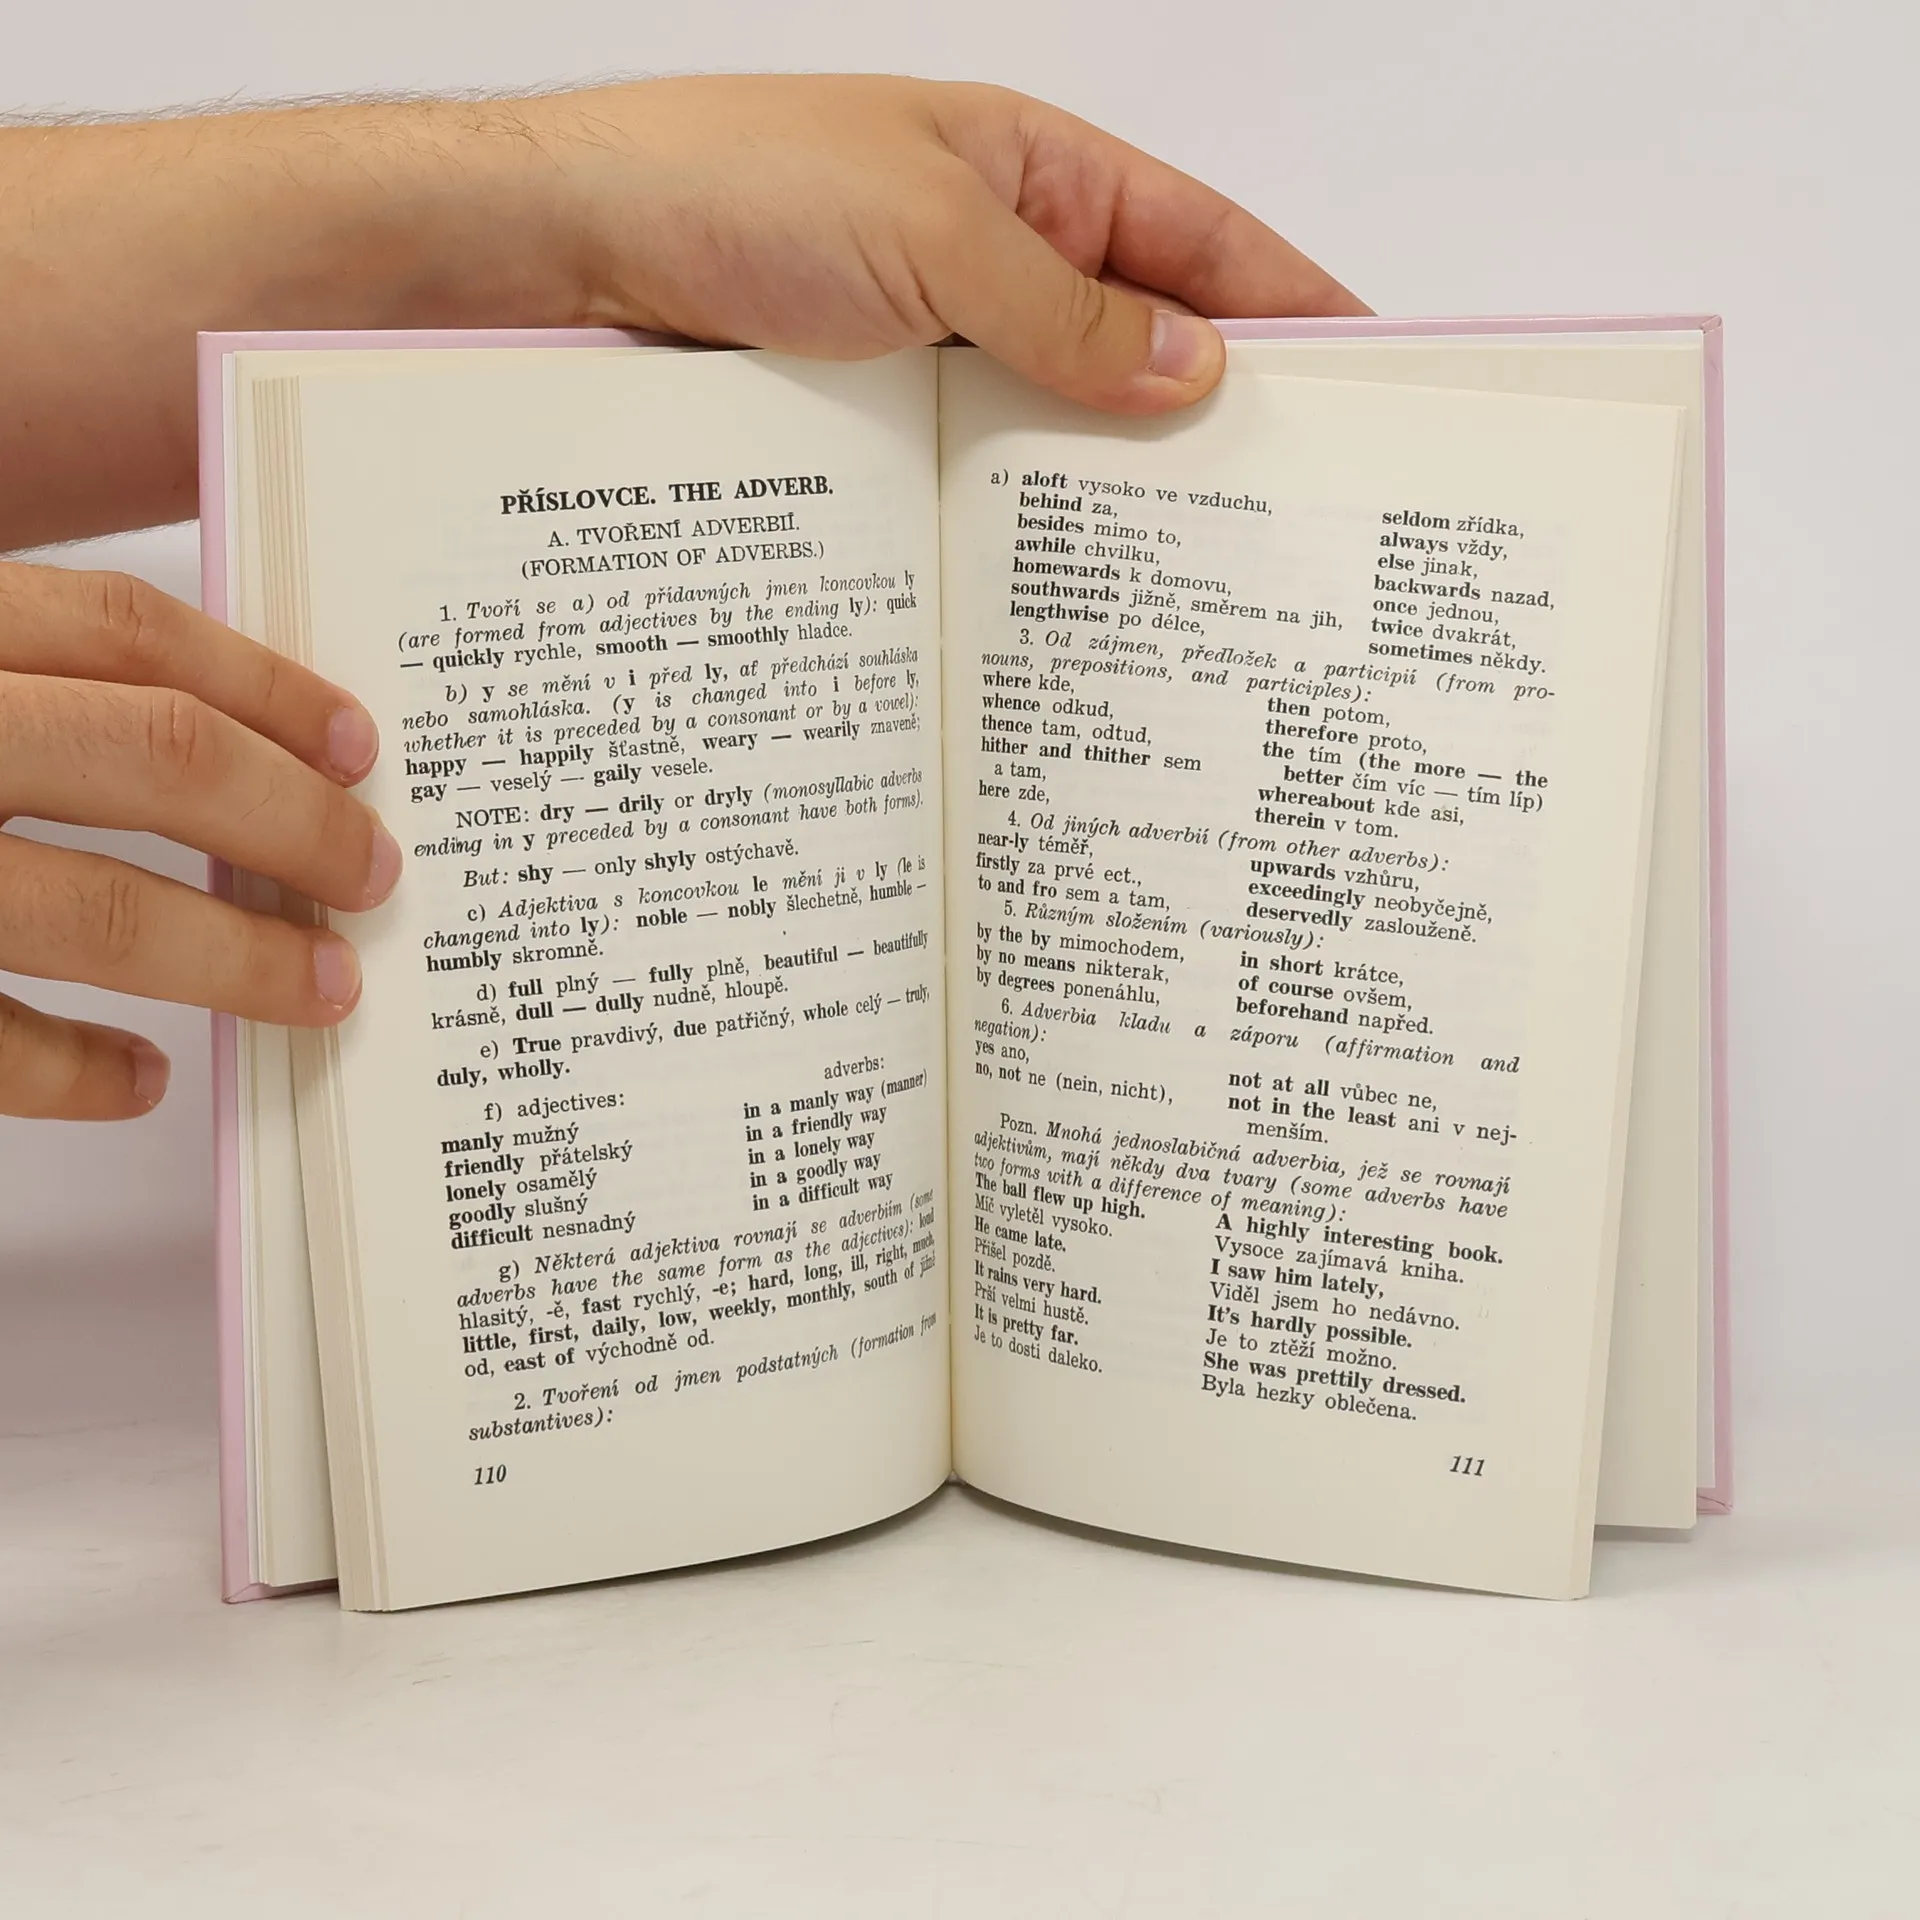 PŘÍSLOVCE. THE ADVERB.
A. TVOŘENÍ ADVERBIÍ.
(FORMATION OF ADVERBS.)
1. Tvoří se a) od přídavných jmen koncovkou ly
(are formed from adjectives by the ending ly): quick
— quickly rychle, smooth — smoothly hladce.
b) y se mění v i před ly, ať předchází souhláska
nebo samohláska. (y is changed into i before ly,
whether it is preceded by a consonant or by a vowel):
happy — happily šťastně, weary — wearily znaveně;
gay — veselý — gaily vesele.
NOTE: dry — drily or dryly (monosyllabic adverbs
ending in y preceded by a consonant have both forms).
But: shy — only shyly ostýchavě.
c) Adjektiva s koncovkou le mění ji v ly (le is
changend into ly): noble — nobly šlechetně, humble –
humbly skromně.
d) full plný — fully plně, beautiful — beautifully
krásně, dull — dully nudně, hloupě.
e) True pravdivý, due patřičný, whole celý — truly,
duly, wholly.
f) adjectives: adverbs:
manly mužný in a manly way (manner)
friendly přátelský in a friendly way
lonely osamělý in a lonely way
goodly slušný in a goodly way
difficult nesnadný in a difficult way
g) Některá adjektiva rovnají se adverbiím (some
adverbs have the same form as the adjectives): loud
hlasitý, -ě, fast rychlý, -e; hard, long, ill, right, much,
little, first, daily, low, weekly, monthly, south of jižně
od, east of východně od.
2. Tvoření od jmen podstatných (formation from
substantives):
110
a) aloft vysoko ve vzduchu,
behind za, seldom zřídka,
besides mimo to, always vždy,
awhile chvilku, else jinak,
homewards k domovu, backwards nazad,
southwards jižně, směrem na jih, once jednou,
lengthwise po délce, twice dvakrát,
sometimes někdy.
3. Od zájmen, předložek a participií (from pro-
nouns, prepositions, and participles):
where kde, then potom,
whence odkud, therefore proto,
thence tam, odtud, the tím (the more — the
hither and thither sem better čím víc — tím líp)
a tam, whereabout kde asi,
here zde, therein v tom.
4. Od jiných adverbií (from other adverbs):
near-ly téměř, upwards vzhůru,
firstly za prvé ect., exceedingly neobyčejně,
to and fro sem a tam, deservedly zaslouženě.
5. Různým složením (variously):
by the by mimochodem, in short krátce,
by no means nikterak, of course ovšem,
by degrees ponenáhlu, beforehand napřed.
6. Adverbia kladu a záporu (affirmation and
negation):
yes ano, not at all vůbec ne,
no, not ne (nein, nicht), not in the least ani v nej-
menším.
Pozn. Mnohá jednoslabičná adverbia, jež se rovnají
adjektivům, mají někdy dva tvary (some adverbs have
two forms with a difference of meaning):
The ball flew up high. A highly interesting book.
Míč vyletěl vysoko. Vysoce zajímavá kniha.
He came late. I saw him lately,
Přišel pozdě. Viděl jsem ho nedávno.
It rains very hard. It's hardly possible.
Prší velmi hustě. Je to ztěží možno.
It is pretty far. She was prettily dressed.
Je to dosti daleko. Byla hezky oblečena.
111